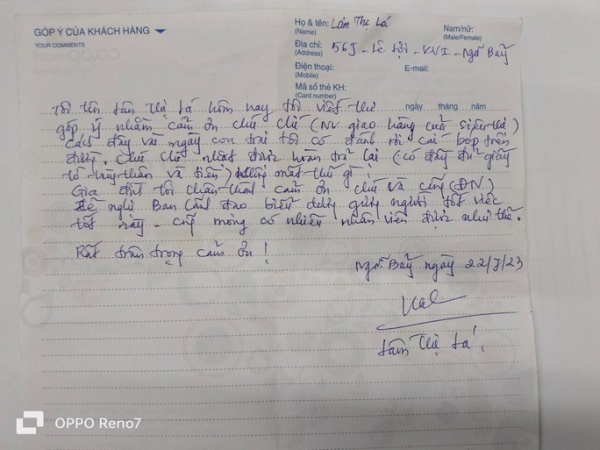 GÓP Ý CỦA KHÁCH HÀNG
YOUR COMMENTS
Họ & tên: Lâm Thị Lá
(Name)
Nam/nữ:
(Male/Female)
Địa chỉ: 567 - Lê Lợi - KVI - Ngã Bảy
(Address)
Điện thoại:
(Mobile)
E-mail:
Mã số thẻ KH:
(Card number)
ngày tháng năm
Tôi tên Lâm Thị Lá hôm nay tôi viết thư
góp ý nhằm cảm ơn chú Chí (NV giao hàng của siêu thị)
Cách đây vài ngày con trai tôi có đánh rơi cái bóp trên
đường. Chú Chí nhặt được hoàn trả lại (có đầy đủ giấy
tờ tùy thân và tiền) không mất thứ gì!
Gia đình tôi chân thành cảm ơn chú và cũng (ĐN)
đề nghị Ban Lãnh đạo biểu dương người tốt việc
tốt này. cũng mong có nhiều nhân viên được như thế.
Rất trân trọng cảm ơn!
Ngã Bảy ngày 22/7/23
Lâm Thị Lá.
OPPO Reno7